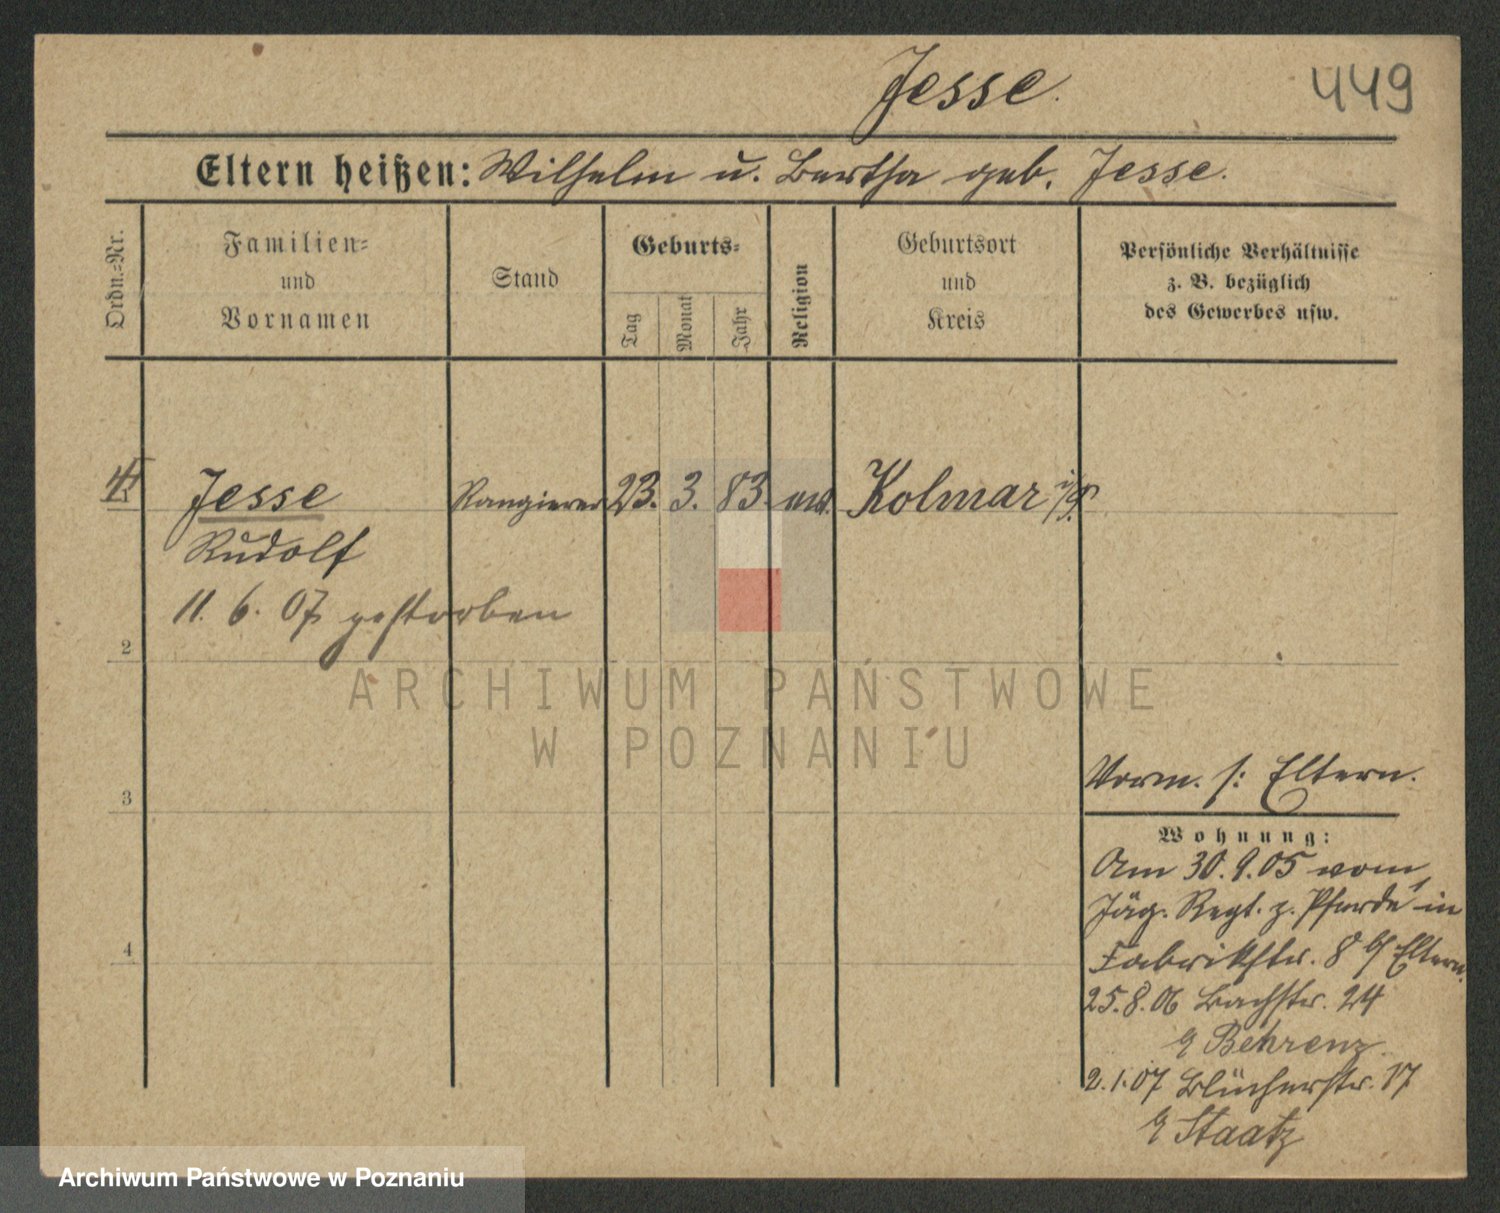 Jesse.
449
Eltern heißen: Wilhelm u. Bertha geb. Jesse.
Ordn.=Nr.
Familien=
und
Vornamen
Stand
Geburts=
Tag
Monat
Jahr
Religion
Geburtsort
und
Kreis
Persönliche Verhältnisse
z. B. bezüglich
des Gewerbes usw.
Jesse Rangierer 23. 3. 83. Kolmar i/P.
Rudolf
11. 6. 07 gestorben
2
3
4
Vorm. s: Eltern.
Wohnung:
Am 30.9.05 vom
Jäg. Regt. z. Pferde 1 in
Fabrikstr. 8 b/ Eltern.
25.8.06 Bachstr. 24
Behrenz
2.1.07 Blücherstr. 17
Staatz
ARCHIWUM PAŃSTWOWE
W POZNANIU
Archiwum Państwowe w Poznaniu